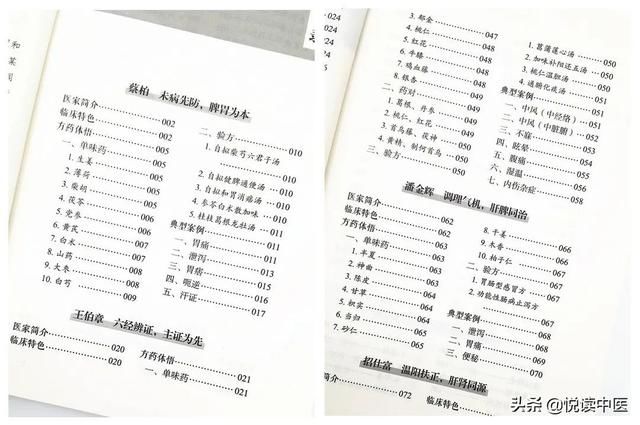 蔡柏 未病先防，脾胃为本
医家简介 002
临床特色 002
方药体悟 005
一、单味药 005
1. 生姜 005
2. 薄荷 005
3. 柴胡 005
4. 茯苓 005
5. 党参 006
6. 黄芪 007
7. 白术 008
8. 山药 008
9. 大枣 009
10. 白芍 009
二、验方 010
1. 自拟柴芍六君子汤
010
2. 自拟健脾通便汤 010
3. 自拟和胃消痞汤 010
4. 参苓白术散加味 010
5. 桂枝葛根龙牡汤 011
典型案例 011
一、胃痛 011
二、泄泻 013
三、胃痞 015
四、呃逆 016
五、汗证 017
王伯章 六经辨证，主证为先
医家简介 020
临床特色 020
方药体悟 021
一、单味药 021
024
024
3. 郁金 047
4. 桃仁 048
5. 红花 048
6. 牛膝 048
7. 鸡血藤 049
8. 银杏 049
二、药对 049
1. 葛根、丹参 049
2. 桃仁、红花 049
3. 首乌藤、茯神 049
4. 黄精、制何首乌 050
三、验方 050
1. 菖蒲莲心汤 050
2. 加味补阳还五汤 050
3. 桃仁温胆汤 050
4. 通腑化痰汤 051
典型案例 051
一、中风（中经络） 051
二、中风（中脏腑） 052
三、不寐 053
四、眩晕 054
五、腹痛 055
六、湿温 056
七、内伤杂症 058
潘金辉 调理气机，肝脾同治
医家简介 062
临床特色 062
方药体悟 063
一、单味药 063
1. 半夏 063
2. 神曲 064
3. 陈皮 064
4. 甘草 064
5. 枳实 065
6. 当归 065
7. 砂仁 065
8. 干姜 066
9. 木香 066
10. 柚子仁 066
二、验方 067
1. 胃肠型感冒方 067
2. 功能性肠病止泻方
067
典型案例 067
一、泄泻 068
二、胃痛 069
三、便秘 070
招仕富 温阳扶正，肝肾同源
072
临床特色
头条 @悦读中医